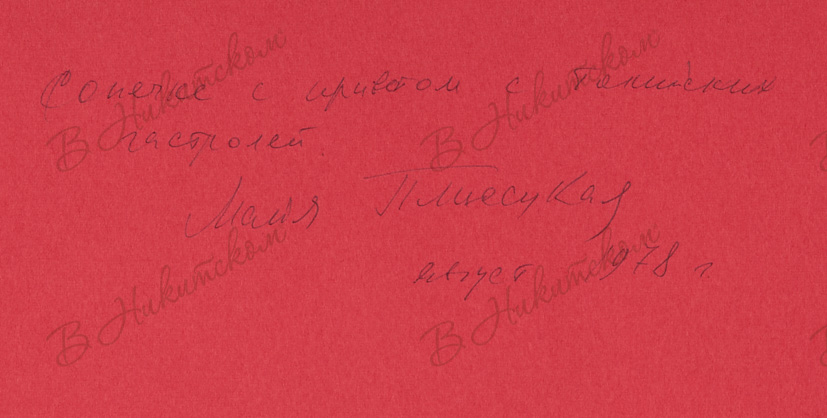 Сонечке с приветом с Пекинских
гастролей.
Майя Плисецкая
август 1978 г
В Никитском
В Никитском
В Никитском
В Никитском